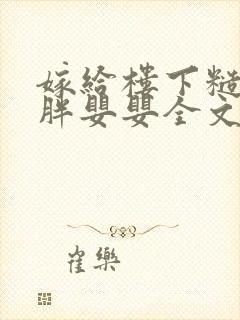 嫁给楼下糙
胖婴婴全文
崔樂